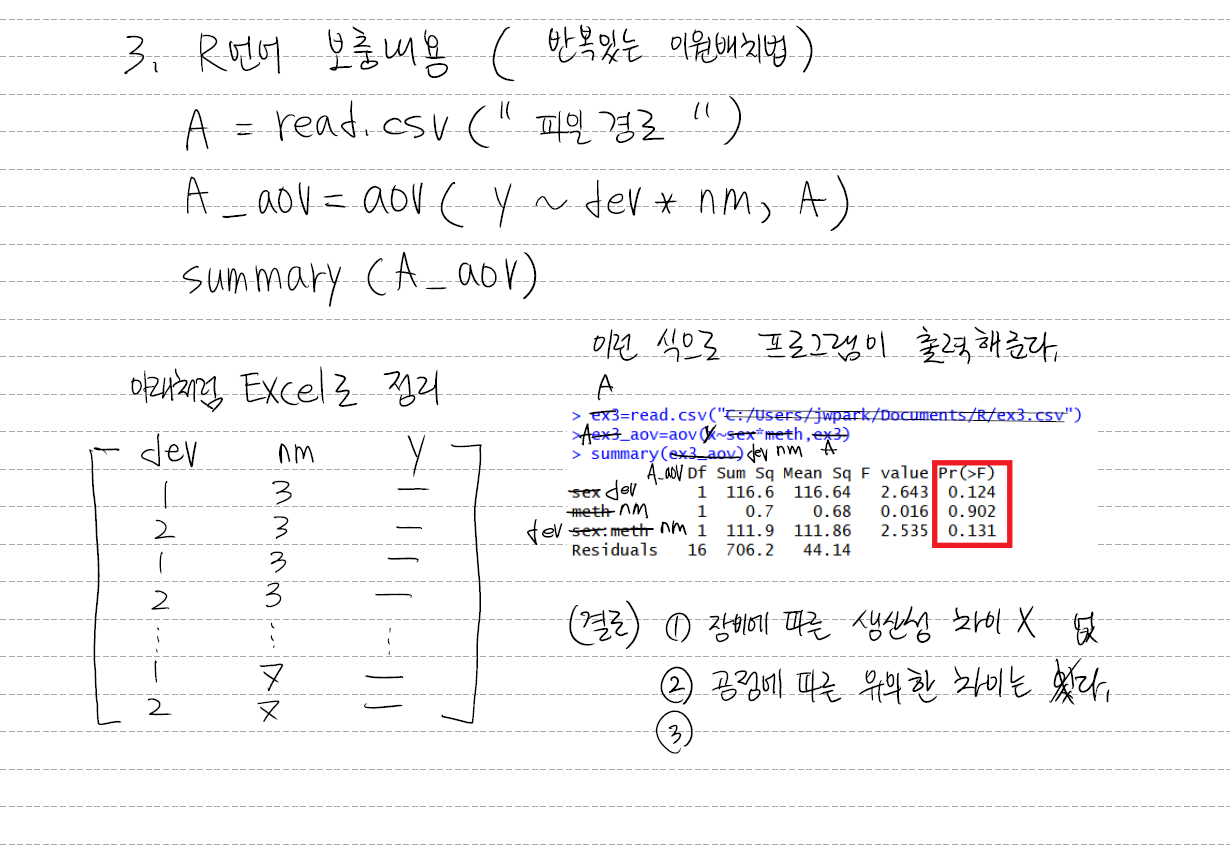 3. R언어 보충내용 ( 반복있는 이원배치법)
A = read.csv ("파일 경로")
A_aov = aov( y ~ dev * nm, A)
summary (A_aov)
이런 식으로 프로그램이 출력해준다.
아래처럼 Excel로 정리
A
> ex3=read.csv("C:/Users/jwpark/Documents/R/ex3.csv")
> A ex3_aov=aov(x~sex*meth,ex3)
> summary(ex3_aov) dev nm A
A_aov Df Sum Sq Mean Sq F value Pr(>F)
sex dev 1 116.6 116.64 2.643 0.124
meth nm 1 0.7 0.68 0.016 0.902
dev sex:meth nm 1 111.9 111.86 2.535 0.131
Residuals 16 706.2 44.14
dev nm y
1 3 —
2 3 —
1 3 —
2 3 —
⋮ ⋮ ⋮
1 7 —
2 7 —
(결론) ① 장비에 따른 생산성 차이 X
② 공정에 따른 유의한 차이는 다.
③